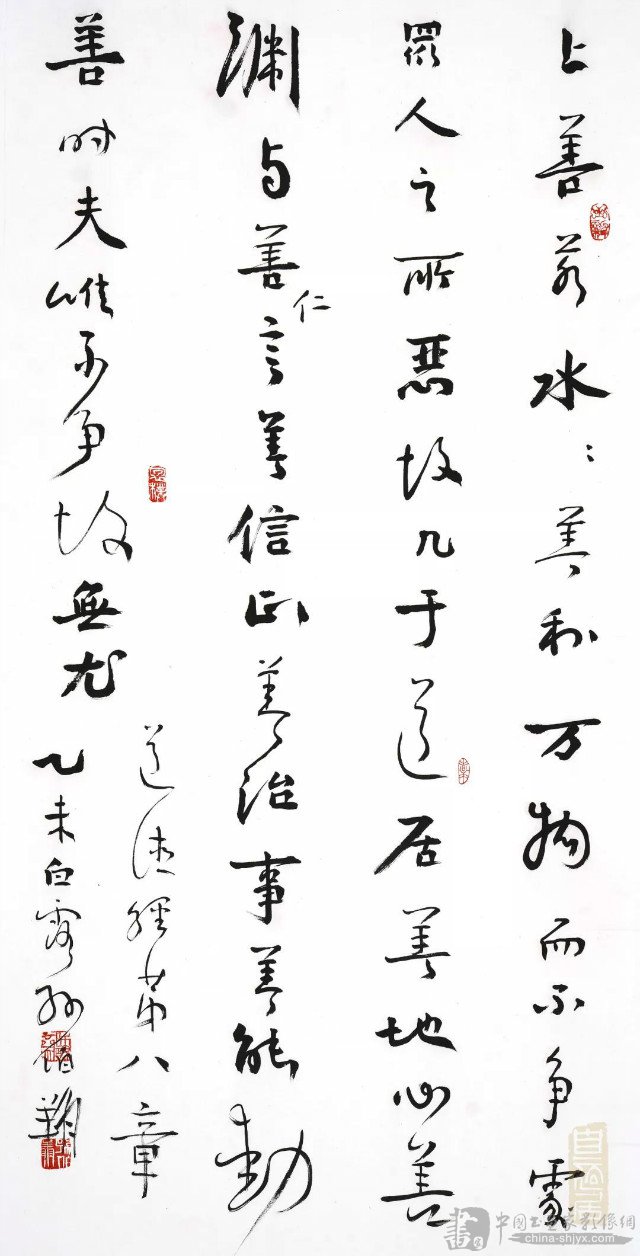 上善若水〻善利万物而不争處
眾人之所惡故几于道居善地心善
渊与善仁言善信正善治事善能動
善时夫唯不争故無尤
道德經第八章
乙未白露孙
中国书画家影像網
china-shjyx.com